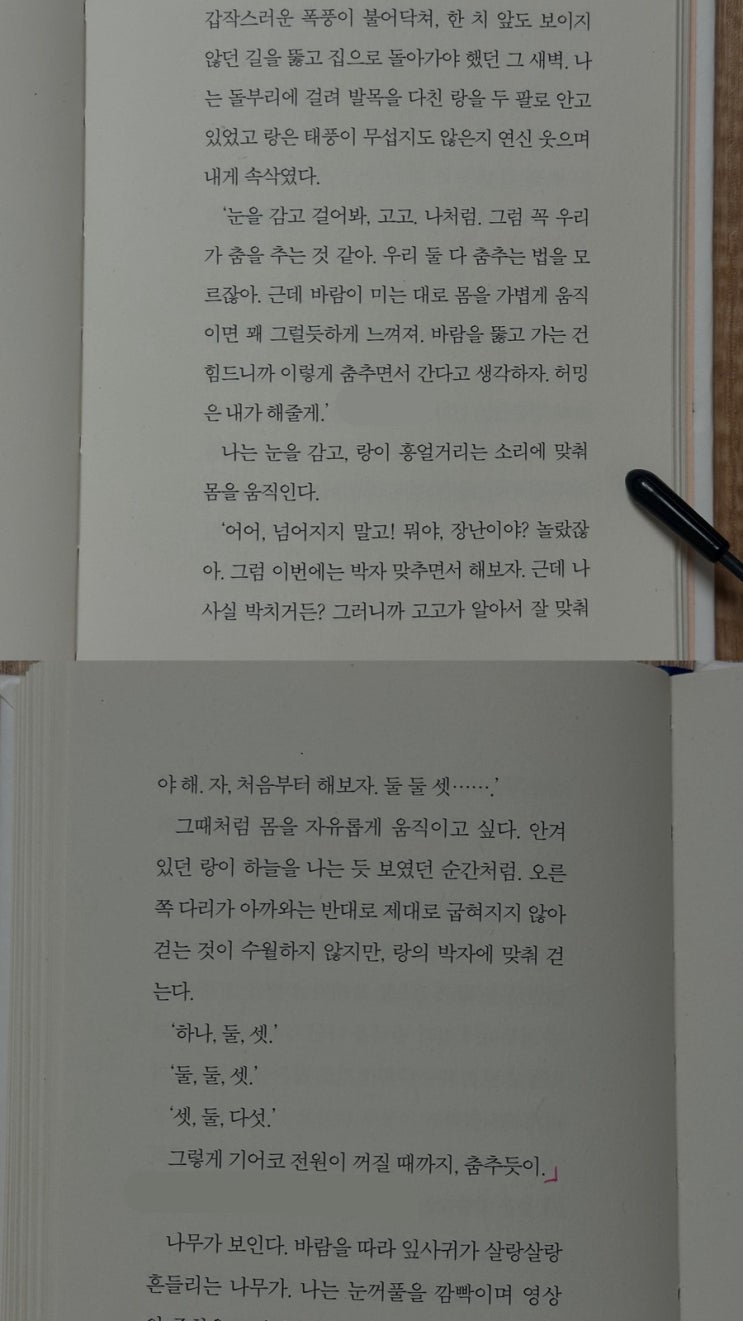 갑작스러운 폭풍이 불어닥쳐, 한 치 앞도 보이지
않던 길을 뚫고 집으로 돌아가야 했던 그 새벽. 나
는 돌부리에 걸려 발목을 다친 랑을 두 팔로 안고
있었고 랑은 태풍이 무섭지도 않은지 연신 웃으며
내게 속삭였다.
‘눈을 감고 걸어봐, 고고. 나처럼. 그럼 꼭 우리
가 춤을 추는 것 같아. 우리 둘 다 춤추는 법을 모
르잖아. 근데 바람이 미는 대로 몸을 가볍게 움직
이면 꽤 그럴듯하게 느껴져. 바람을 뚫고 가는 건
힘드니까 이렇게 춤추면서 간다고 생각하자. 허밍
은 내가 해줄게.’
나는 눈을 감고, 랑이 흥얼거리는 소리에 맞춰
몸을 움직인다.
‘어어, 넘어지지 말고! 뭐야, 장난이야? 놀랐잖
아. 그럼 이번에는 박자 맞추면서 해보자. 근데 나
사실 박치거든? 그러니까 고고가 알아서 잘 맞춰
야 해. 자, 처음부터 해보자. 둘 둘 셋…….’
그때처럼 몸을 자유롭게 움직이고 싶다. 안겨
있던 랑이 하늘을 나는 듯 보였던 순간처럼. 오른
쪽 다리가 아까와는 반대로 제대로 굽혀지지 않아
걷는 것이 수월하지 않지만, 랑의 박자에 맞춰 걷
는다.
‘하나, 둘, 셋.’
‘둘, 둘, 셋.’
‘셋, 둘, 다섯.’
그렇게 기어코 전원이 꺼질 때까지, 춤추듯이.」
나무가 보인다. 바람을 따라 잎사귀가 살랑살랑
흔들리는 나무가. 나는 눈꺼풀을 깜빡이며 영상